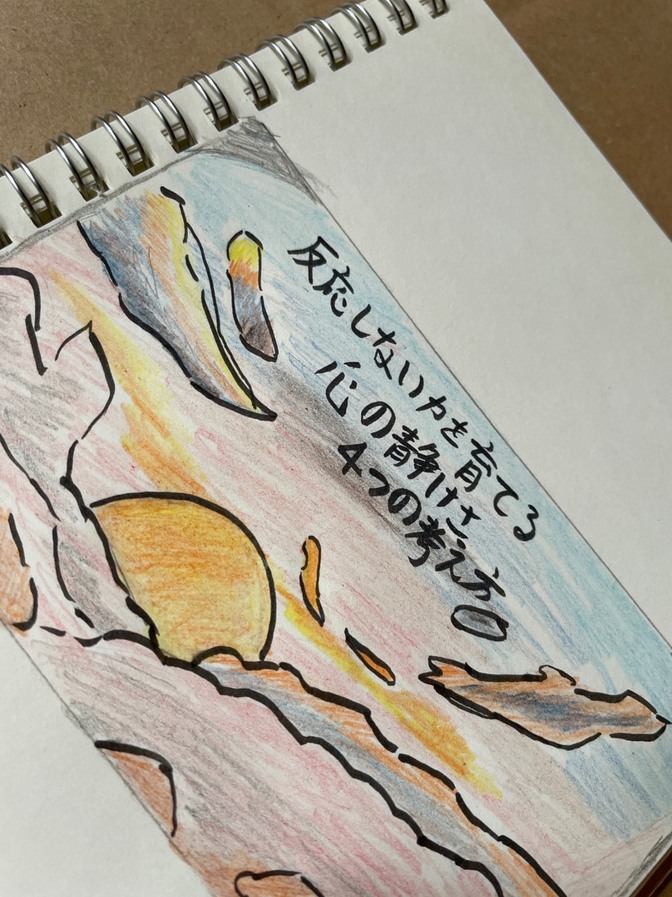 反応しない力を育てる
心の静けさ
4つの考え方